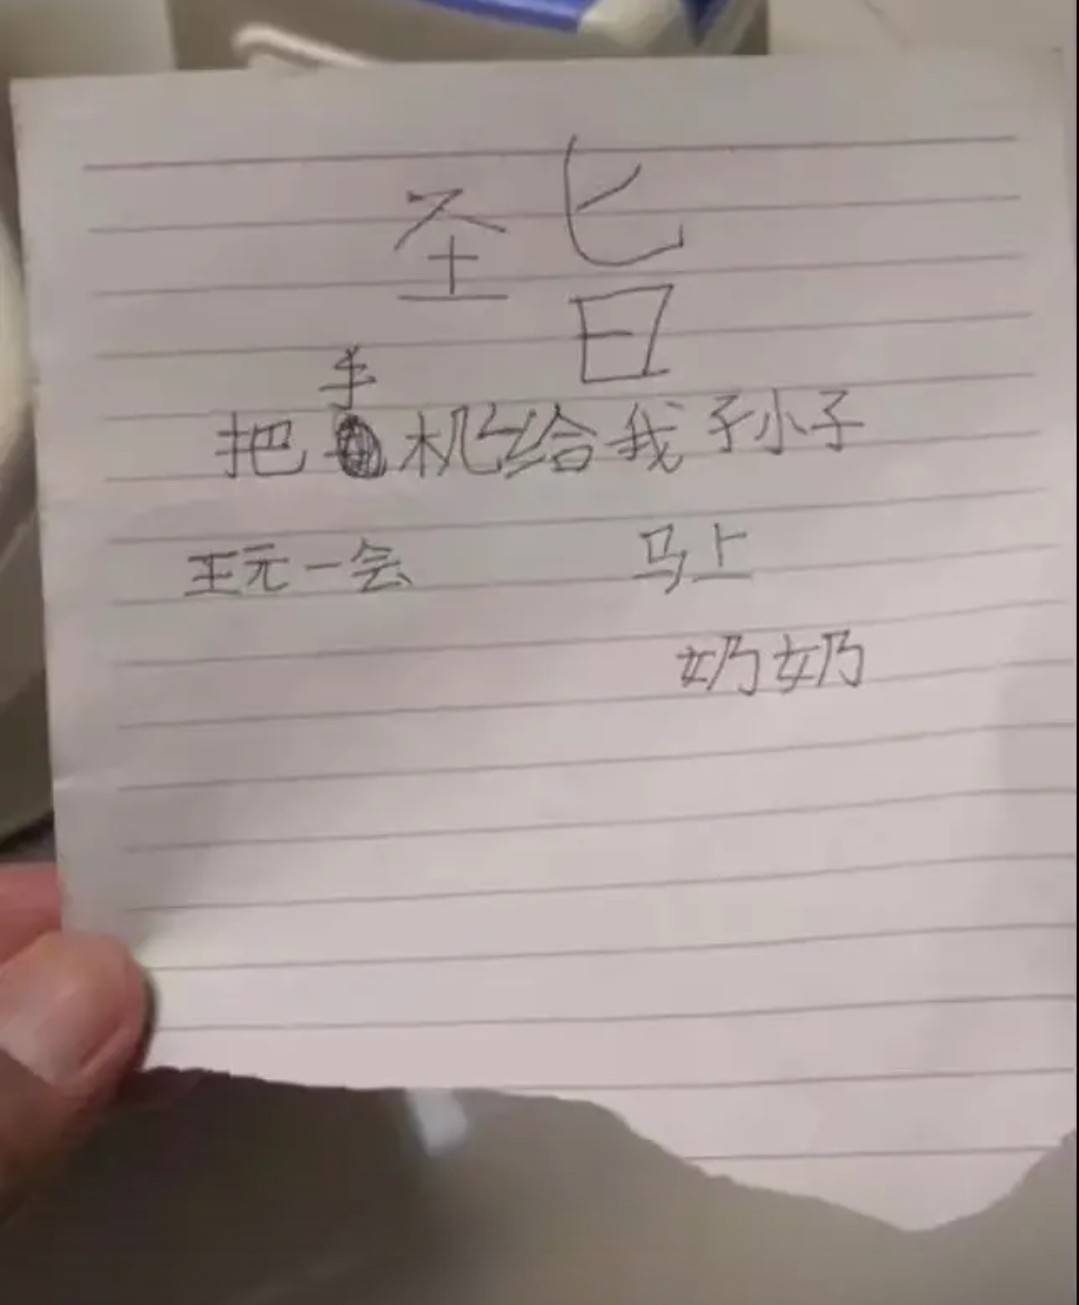 圣旨
把手机给我孙子
王元一会 马上
奶奶